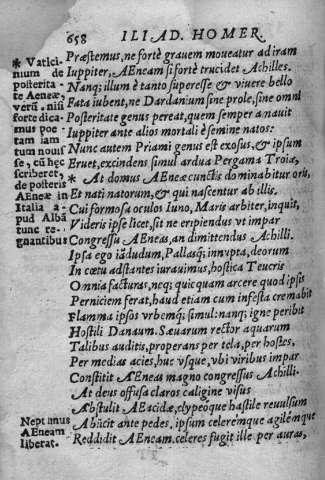 658 ILIAD. HOMER.
Præstemus, ne fortè gravem moveatur ad iram
Iuppiter, AEneam si fortè trucidet Achilles.
Nanq; illum è tanto superesse & vivere bello
Fata iubent, ne Dardanium sine prole, sine omni
Posteritate genus pereat, quem semper amauit
Iuppiter ante alios mortali è semine natos:
Nunc autem Priami genus est exosus, & ipsum
Eruet, excindens simul ardua Pergama Troiæ,
* At domus AEneæ cunctis dominabitur oris,
Et nati natorum, & qui nascentur ab illis.
Cui formosa oculos Iuno, Maris arbiter, inquit,
Videris ipse licet, sit ne eripiendus vt impar
Congressu AEneas, an dimittendus Achilli.
Ipsa ego iādudum, Pallasq́; innupta, deorum
In cœtu adstantes iurauimus, hostica Teucris
Omnia facturas, neq; quicquam arcere quod ipsis
Perniciem ferat, haud etiam cum infesta cremabit
Flamma ipsos vrbemq́; simul: nanq; igne peribit
Hostili Danaum. Sæuarum rector aquarum
Talibus auditis, properans per tela, per hostes,
Per medias acies, huc vsque, vbi viribus impar
Constitit AEneas magno congressus Achilli.
At deus offusa claros caligine visus
Abstulit AEacidæ, clypeoque hastile reuulsum
Abiicit ante pedes, ipsum celeremque agilemque
Reddidit AEneam. celeres fugit ille per auras,
* Vatici-
nium de
posterita-
te Aeneæ,
verū. nisi
forte dica-
mus poe-
tam iam
tum nouis-
se, cū hęc
scriberet,
de posteris
AEneæ in
Italia a-
pud Albā
tunc re-
gnantibus
Neptunus
AEneam
liberat.